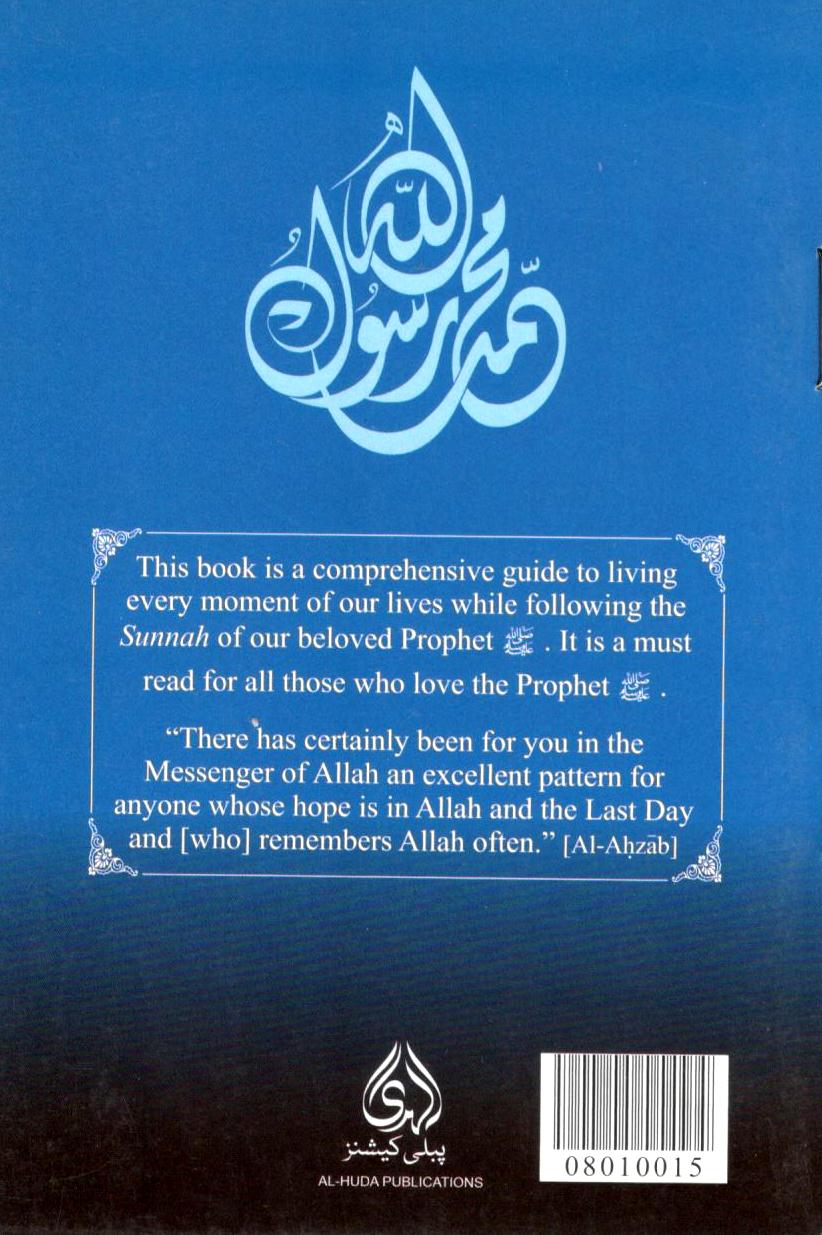 محمد رسول الله
This book is a comprehensive guide to living
every moment of our lives while following the
Sunnah of our beloved Prophet ﷺ . It is a must
read for all those who love the Prophet ﷺ .
“There has certainly been for you in the
Messenger of Allah an excellent pattern for
anyone whose hope is in Allah and the Last Day
and [who] remembers Allah often.” [Al-Aḥzāb]
الهدى
پبلی کیشنز
AL-HUDA PUBLICATIONS
08010015